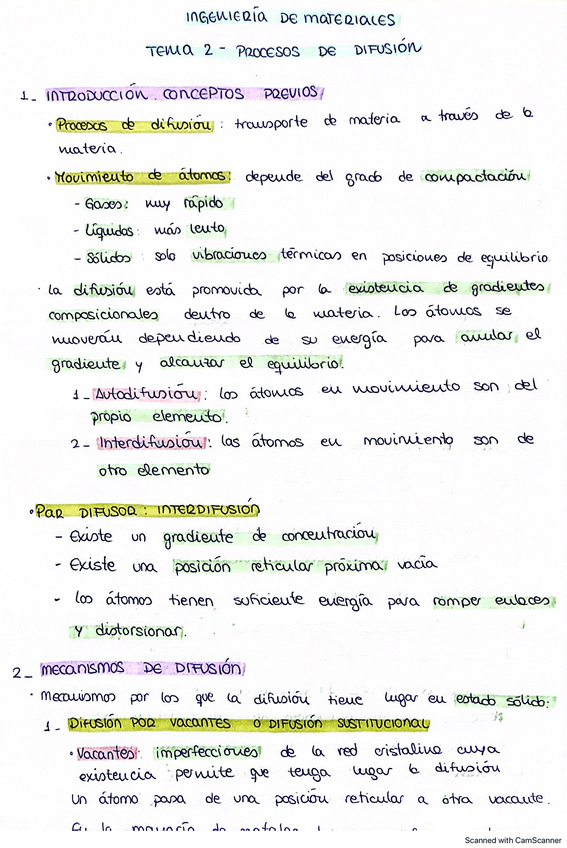 INGENIERÍA DE MATERIALES
TEMA 2 - PROCESOS DE DIFUSIÓN
1_ INTRODUCCIÓN. CONCEPTOS PREVIOS
• Procesos de difusión: transporte de materia a través de la
materia.
• Movimiento de átomos: depende del grado de compactación
- Gases: muy rápido
- Líquidos: más lento
- Sólidos: solo vibraciones térmicas en posiciones de equilibrio
• La difusión está promovida por la existencia de gradientes
composicionales dentro de la materia. Los átomos se
moverán dependiendo de su energía para anular el
gradiente y alcanzar el equilibrio.
1_ Autodifusión: los átomos en movimiento son del
propio elemento.
2_ Interdifusión: las átomos en movimiento son de
otro elemento
• PAR DIFUSOR: INTERDIFUSIÓN
- Existe un gradiente de concentración
- Existe una posición reticular próxima vacía
- Los átomos tienen suficiente energía para romper enlaces
y distorsionar.
2_ MECANISMOS DE DIFUSIÓN
• Mecanismos por los que la difusión tiene lugar en estado sólido:
1_ DIFUSIÓN POR VACANTES O DIFUSIÓN SUSTITUCIONAL
• Vacantes: imperfecciones de la red cristalina cuya
existencia permite que tenga lugar la difusión
Un átomo pasa de una posición reticular a otra vacante.
En la mayoría de metales
Scanned with CamScanner